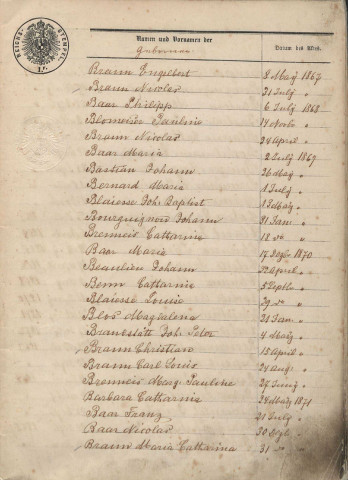 REICHS-STEMPEL
Namen und Vornamen der Datum des Akts.
Gebornen
Braun Engelbert 8 Maÿ 1867
Braun Nicolas 21 Julÿ "
Baar Philipp 6 Julÿ 1868
Blomeiser Pauline 14 Novbr "
Braun Nicolas 24 April "
Baar Maria 2 Julÿ 1869
Bastian Johann 26 Maÿ "
Bernard Maria 1 Julÿ "
Blaiesse Joh. Baptist 1 Maÿ "
Bourguignon Johann 21 Jan "
Brenneis Catharina 18 do "
Baar Maria 17 Sepbr 1870
Beaulieu Johann 12 April "
Benn Catharina 5 Septbr "
Blaiesse Louise 29 do "
Blos Magdalena 21 Jan "
Braun Christian 15 April "
Braun Carl Louis 24 Aug "
Brenneis Marg. Pauline 27 Juny "
Barbara Catharina 24 Maÿ 1871
Baar Franz 21 Julÿ "
Baar Nicolas 30 Sepbr "
Braun Maria Catharina 31 do "